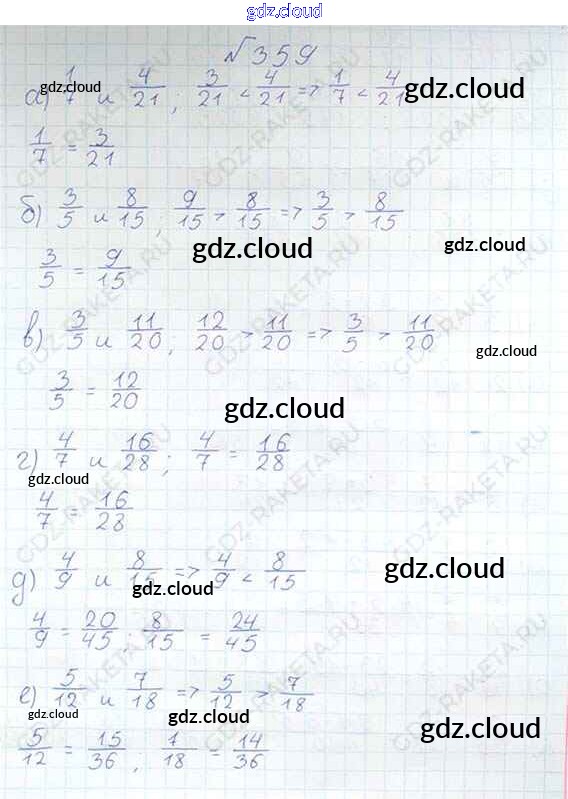 gdz.cloud
№359
а) 1/7 и 4/21; 3/21 < 4/21 => 1/7 < 4/21
gdz.cloud
gdz.cloud
1/7 = 3/21
б) 3/5 и 8/15; 9/15 > 8/15 => 3/5 > 8/15
gdz.cloud
gdz.cloud
3/5 = 9/15
в) 3/5 и 11/20; 12/20 > 11/20 => 3/5 > 11/20
gdz.cloud
3/5 = 12/20
gdz.cloud
г) 4/7 и 16/28; 4/7 = 16/28
gdz.cloud
4/7 = 16/28
д) 4/9 и 8/15 => 4/9 < 8/15
gdz.cloud
gdz.cloud
4/9 = 20/45; 8/15 = 24/45
е) 5/12 и 7/18 => 5/12 > 7/18
gdz.cloud
gdz.cloud
gdz.cloud
5/12 = 15/36, 7/18 = 14/36
GDZ-RAKETA.RU